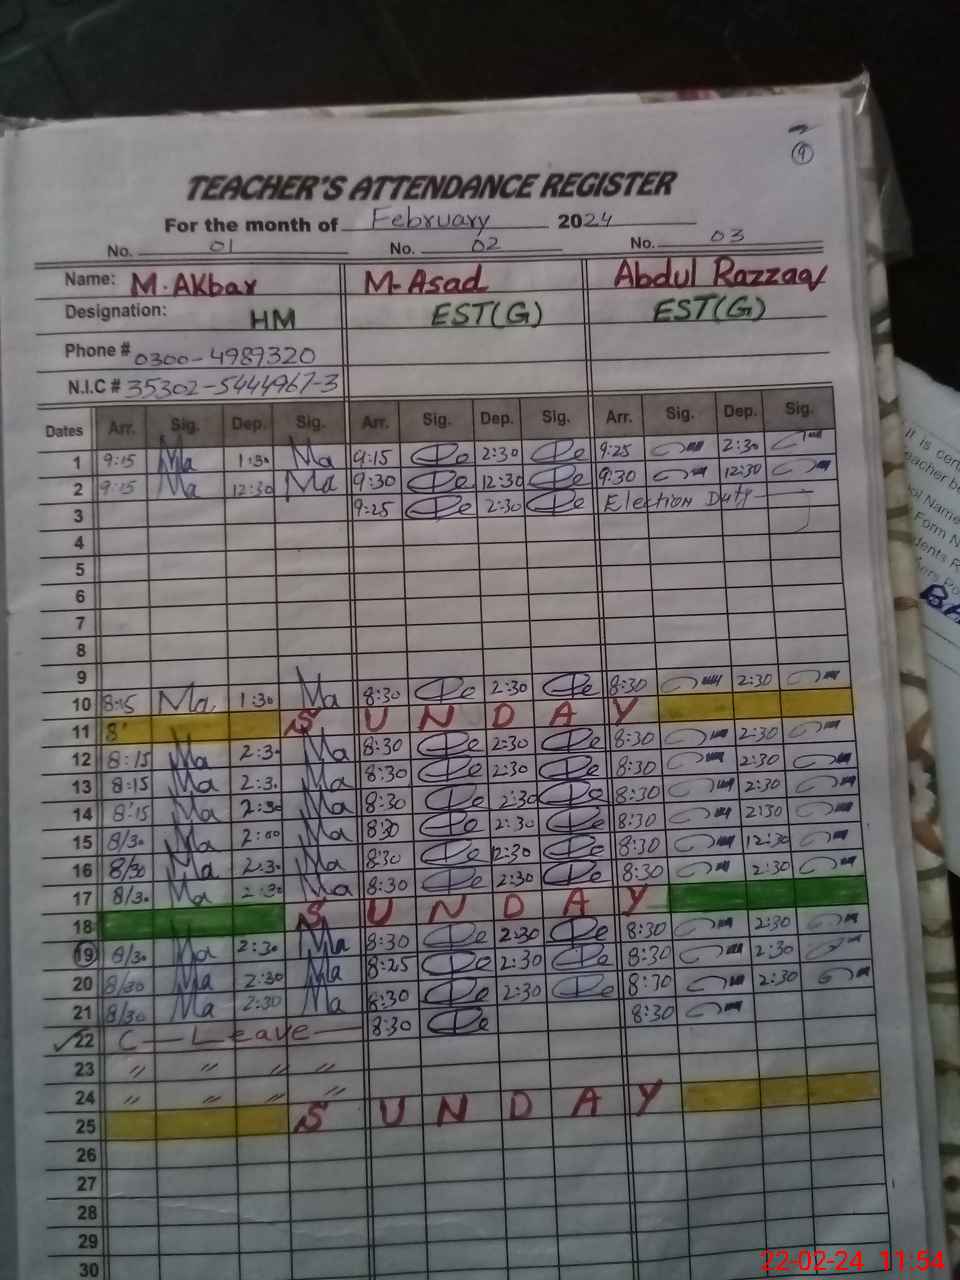 9
TEACHER'S ATTENDANCE REGISTER
For the month of February 2024
No. 01 No. 02 No. 03
Name: M.Akbar M-Asad Abdul Razzaq
Designation: HM EST(G) EST(G)
Phone # 0300-4989320
N.I.C # 35302-5444967-3
Dates Arr. Sig. Dep. Sig. Arr. Sig. Dep. Sig. Arr. Sig. Dep. Sig.
1 9:15 Ma 1:30 Ma 9:15 2:30 9:25 2:30
2 9:15 Ma 12:30 Ma 9:30 12:30 9:30 12:30
3 9:25 2:30 Election Duty
4
5
6
7
8
9
10 8:15 Ma 1:30 Ma 8:30 2:30 8:30 2:30
11 8' SUNDAY
12 8:15 Ma 2:3. Ma 8:30 2:30 8:30 2:30
13 8:15 Ma 2:3. Ma 8:30 2:30 8:30 2:30
14 8:15 Ma 2:30 Ma 8:30 2:30 8:30 2:30
15 8/3. Ma 2:00 Ma 8:30 2:30 8:30 2:30
16 8/30 Ma 2:3. Ma 8:30 12:30 8:30 12:30
17 8/3. Ma 2:30 Ma 8:30 2:30 8:30 2:30
18 SUNDAY
19 8/3. Ma 2:30 Ma 8:30 2:30 8:30 2:30
20 8/30 Ma 2:30 Ma 8:25 2:30 8:30 2:30
21 8/30 Ma 2:30 Ma 8:30 2:30 8:30 2:30
22 C-Leave 8:30 8:30
23 〃 〃 〃 〃
24 〃 〃 〃 〃
25 SUNDAY
26
27
28
29
30
It is cert
eacher be
Name
Form N
dents R
BA
22-02-24 11:54